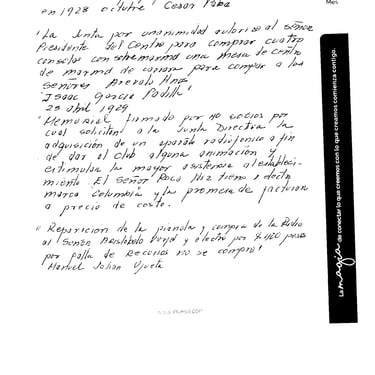 en 1928 octubre / Cesar
"La Junta por unanimidad autorizo al señor
Presidente del Centro para comprar cuatro
consolas con sobremarmol una mesa de centro
de marmol de carrara para comprar a los
señores Arevalo Hnos"
"Isaac Garcia Padilla"
23 abril 1929
"Memorial firmado por 40 socios por
cual solicitan a la Junta Directiva la
adquisición de un aparato radiofonico a fin
de dar al club alguna animación y
estimular la mayor asistencia al estableci-
miento. El Señor Paco tiene
marca Columbia y la promesa de
a precio de costo.
"Reparacion de la pianola y compra de la Radio
al Señor Aristobulo y electro por $400 pesos
por falta de Recursos no se compro"
Manuel Julian
La magia de conectar lo que creemos con lo que creamos comienza contigo.